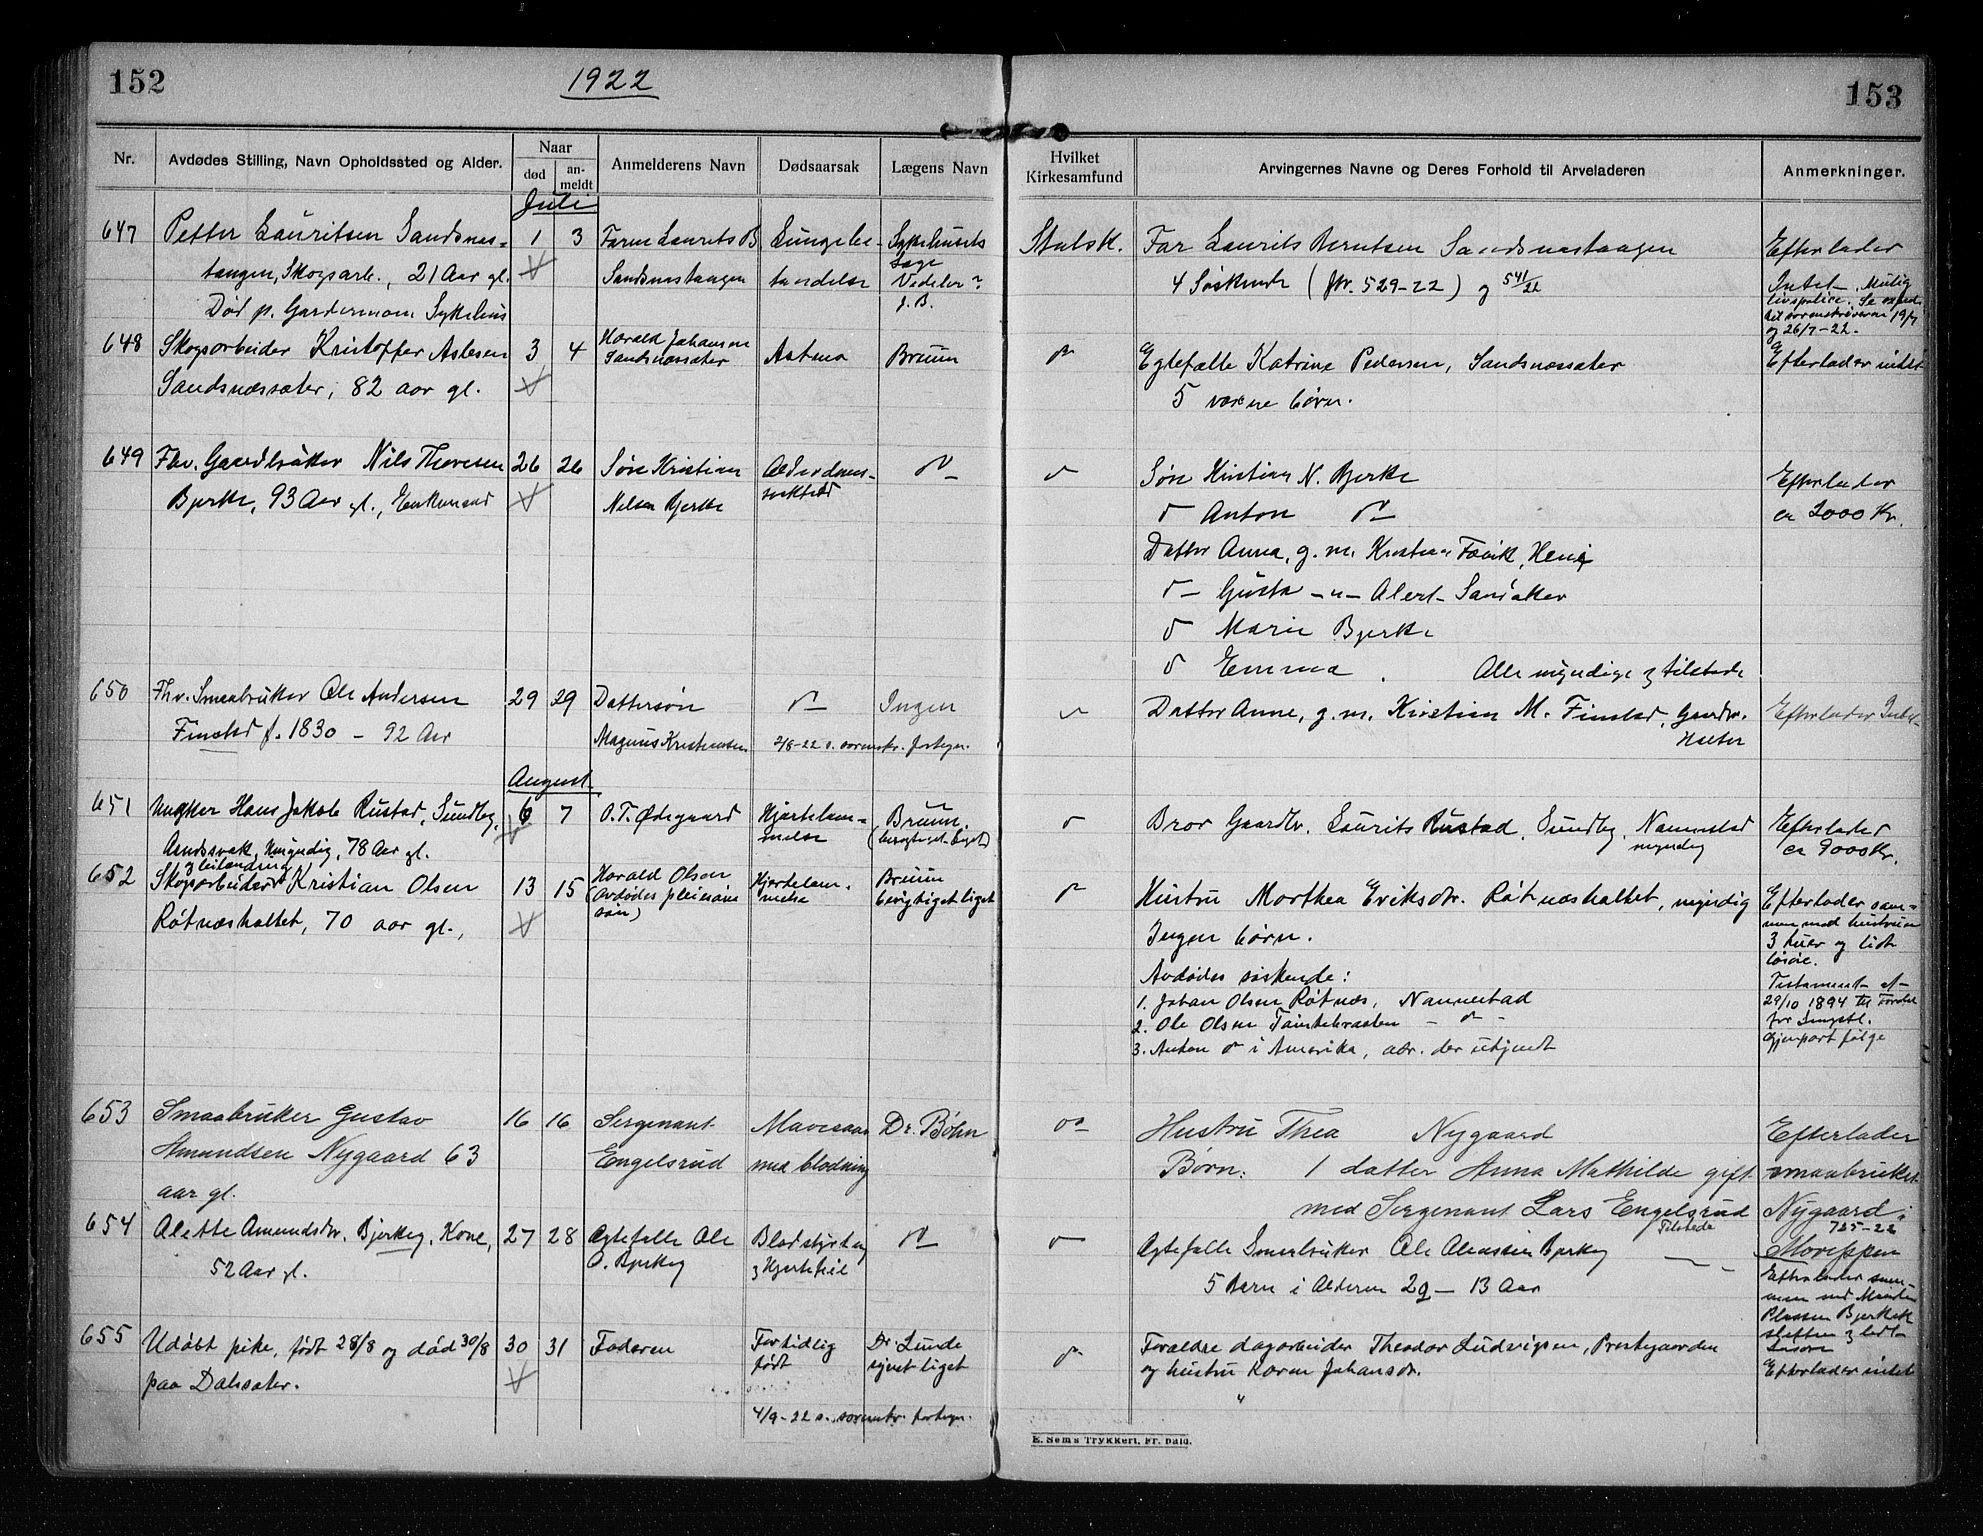 152
1922
153
Nr.
Avdødes Stilling, Navn Opholdssted og Alder.
Naar
død
an-
meldt
Anmelderens Navn
Dødsaarsak
Lægens Navn
Hvilket
Kirkesamfund
Arvingernes Navne og Deres Forhold til Arveladeren
Anmerkninger.
Juli
647 Petter Lauritsen Sandsnes- 1 3 Faren Laurits B Lungebe- Sykehusets Statsk. Far Laurits Berntsen Sandsnestangen Efterlader
tangen, Skogsarb., 21 Aar gl. Sandsnestangen tændelse Læge 4 Søskende (Nr. 529-22) og 541/22 Intet.
Død p. Gardermoen Sykehus Vedeler?
J. B.
og 26/7-22.
648 Skogsarbeider Kristoffer Aslesen 3 4 Harald Johansen Astma Bruun Egtefælle Katrine Pedersen, Sandsnessæter Efterlader intet
Sandsnæssæter, 82 aar gl. Sandsnæssæter 5 voxne børn.
649 Fhv. Gaardbruker Nils Thoresen 26 26 Søn Kristian Alderdoms- Søn Kristian N. Bjerke Efterlader
Bjerke, 93 Aar gl., Enkemand Nilsen Bjerke svakhed Anton ca 2000 Kr.
Datter Anna, g. m. Kristian
Gusta -"- Albert Sandaker
Marie Bjerke
Emma. Alle myndige og tilstede
650 Fhv. Smaabruker Ole Andersen 29 29 Dattersøn Ingen Datter Anne, g. m. Kristian M. Finstad, Gaardbr. Efterlader
Finstad f. 1830 - 92 Aar Magnus Kristiansen 2/8-22 s. sorenskr. fortegn. Holter
August
651 Ungkar Hans Jakob Rustad, Sundby, 6 7 O. T. Ødegaard Hjertelam- Bruun Bror Gaardbr. Laurits Rustad, Sundby, Nannestad Efterlader
Aandssvak, Umyndig, 78 Aar gl. melse myndig ca 9000 Kr.
652 Skogsarbeider Kristian Olsen 13 15 Harald Olsen Hjertelam- Bruun Hustru Marthea Eriksdtr. Røtnæshaltet, myndig Efterlader sam-
Røtnæshaltet, 70 aar gl., (avdødes pleiesøn) melse besigtiget liget Ingen børn. men med hustruen
3 kuer og lidt
løsøre.
Avdødes søskende: Testament af
1. Johan Olsen Røtnæs, Nannestad 29/10 1894
2. Ole Olsen
3. Anton i Amerika, adr. der ukjendt Gjenpart følge
653 Smaabruker Gustav 16 16 Sergenant Mavesaar Dr. Bøhn Hustru Thea Nygaard Efterlader
Amundsen Nygaard 63 Engelsrud med blødning Børn: 1 datter Anna Mathilde gift smaabruket
aar gl. med Sergenant Lars Engelsrud Nygaard
725-22
654 Alette Amundsdtr. Bjerkeg, Kone, 27 28 Egtefælle Ole Blodstyrtn Egtefælle Smaabruker Ole Bjerkeg Tilstede
52 Aar gl. O. Bjerkeg og Hjertefeil 5 Barn i Alderen 29 - 13 Aar Efterlader sam-
men med Manden
Plassen
655 Udøbt pike, født 28/8 og død 30/8 30 31 Faderen Fortidlig Dr. Lunde Foreldre dagarbeider Theodor Ludvigsen, Prestegaarden
paa Dalsæter. født synet liget og hustru Karen Johansdr. Efterlader intet
4/9-22 s. sorenskr. fortegn.
E. Sem's Trykkeri, Fr. hald.